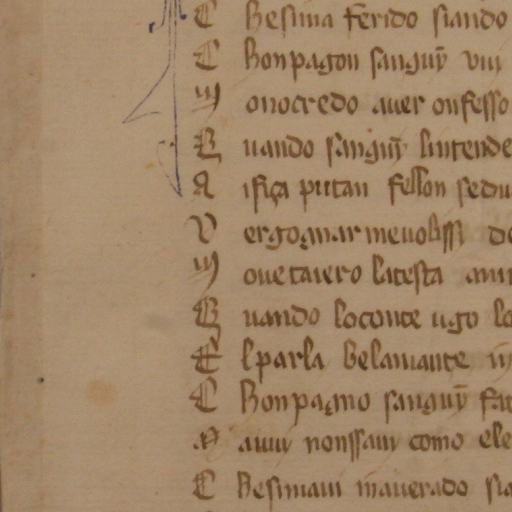 C hesima ferido siando
C honpagon sanguȳ viij
M onocredo auer onfesso
Q uando sanguȳ lintende
A ifiça putan fellon sedu
V ergognar meuolissi de
M ouetaiero latesta
Q uando loconte ugo lo
E lparla belamante
C honpagno sanguȳ
N auui nonssaui como ele
C hesimaui mauerado sia